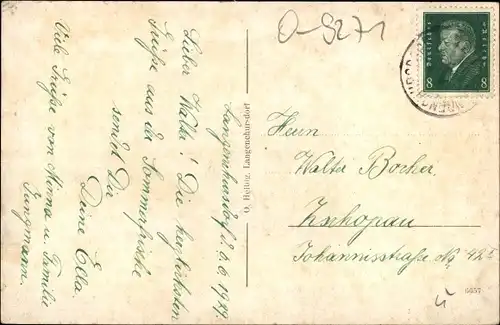 O-9271
Langenchursdorf, 2.6.1929.
Lieber Walter! Die herzlichsten
Grüße aus der Sommerfrische
sendet Dir
Deine Ella.
Viele Grüße von Minna u. Familie
Jungmann.
O. Heilog. Langenchursdorf
Deutsches Reich
8 8
Herrn
Walter Bocher.
Zschopau
Johannisstraße No 42
6657